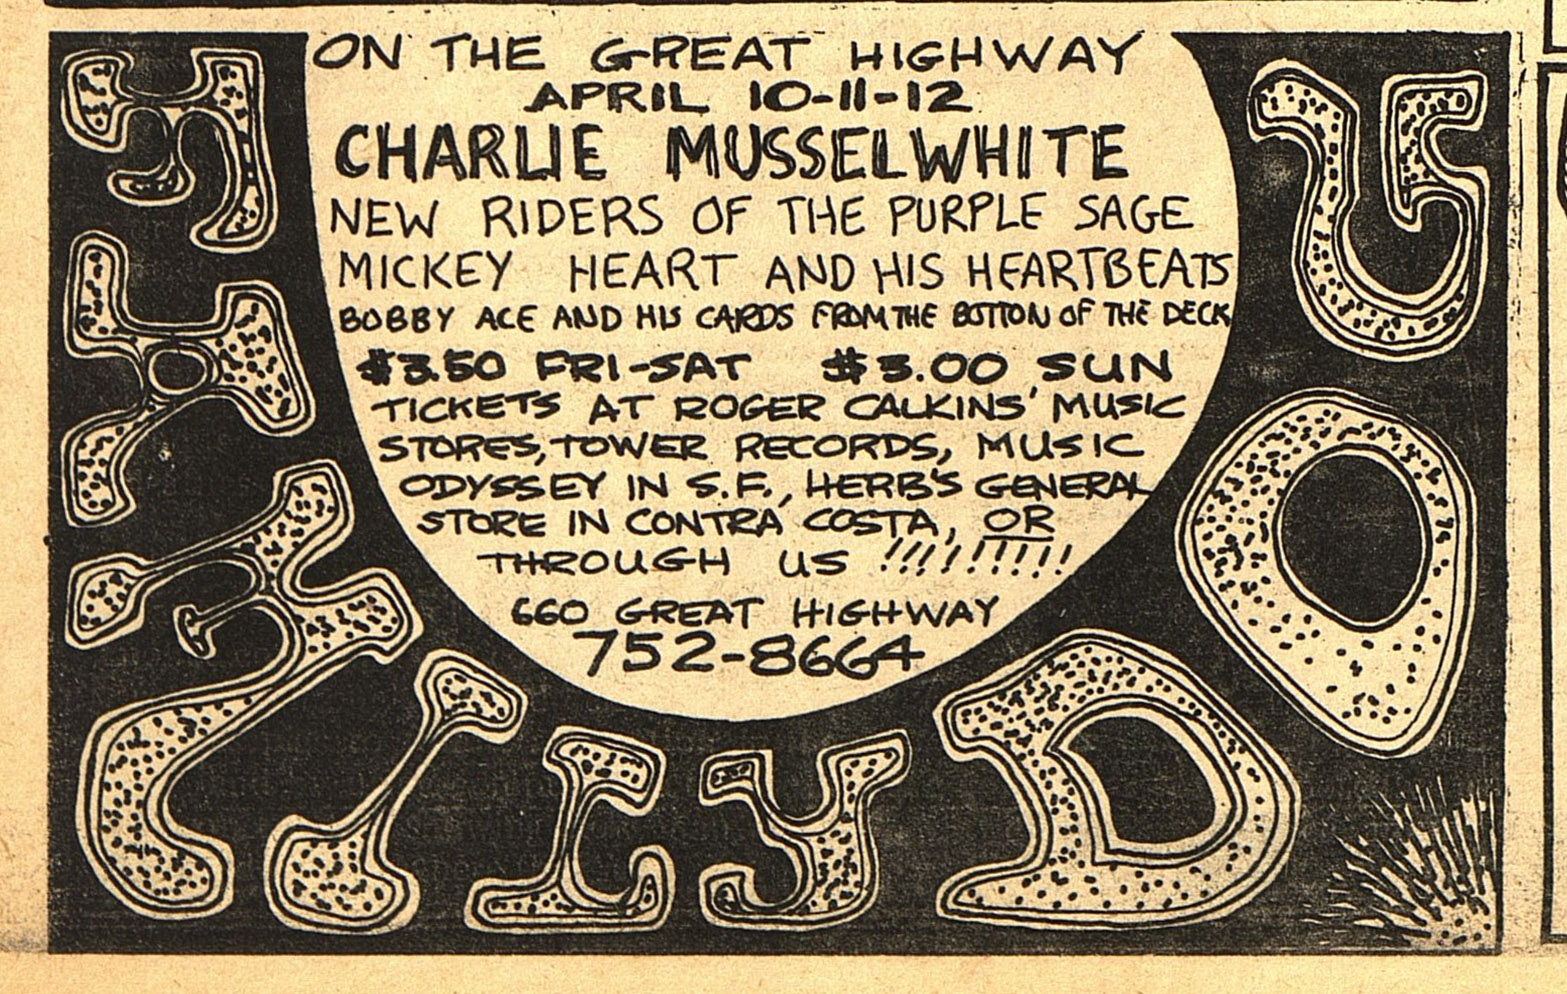 FAMILY DOG
ON THE GREAT HIGHWAY
APRIL 10-11-12
CHARLIE MUSSELWHITE
NEW RIDERS OF THE PURPLE SAGE
MICKEY HEART AND HIS HEARTBEATS
BOBBY ACE AND HIS CARDS FROM THE BOTTON OF THE DECK
$3.50 FRI-SAT $3.00 SUN
TICKETS AT ROGER CALKINS' MUSIC
STORES, TOWER RECORDS, MUSIC
ODYSSEY IN S.F., HERB'S GENERAL
STORE IN CONTRA COSTA, OR
THROUGH US !!!!!!!!!
660 GREAT HIGHWAY
752-8664